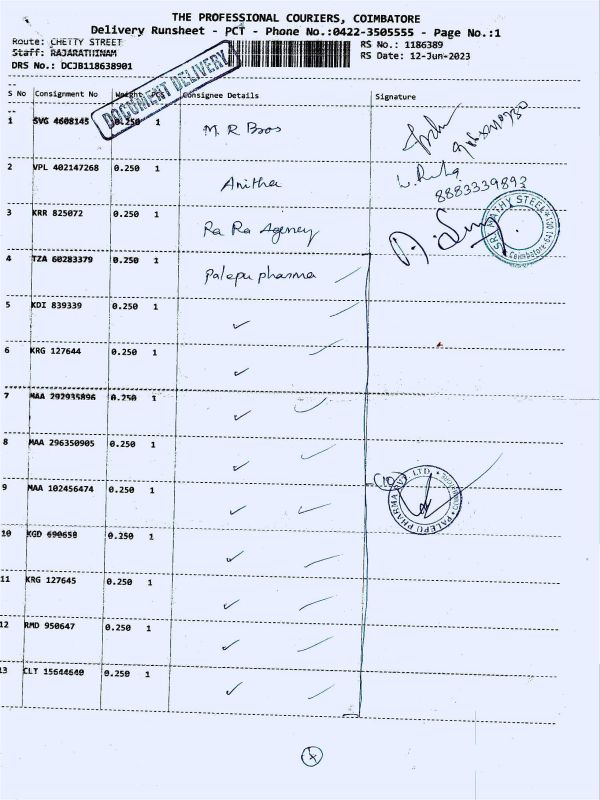 THE PROFESSIONAL COURIERS, COIMBATORE
Delivery Runsheet - PCT - Phone No.:0422-3505555 - Page No.:1
Route: CHETTY STREET
RS No.: 1186389
Staff: RAJARATHINAM
RS Date: 12-Jun-2023
DRS No.: DCJB118638901
DOCUMENT DELIVERY
S No Consignment No Weight PCS Consignee Details Signature
1 SVG 4608145 0.250 1 M R Bros
2 VPL 402147268 0.250 1 Anitha
8883339893
3 KRR 825072 0.250 1 Ra Ra Agency
4 TZA 60283379 0.250 1 Palepu pharma
5 KDI 839339 0.250 1 ✓
6 KRG 127644 0.250 1 ✓
7 MAA 292935896 0.250 1 ✓
8 MAA 296350905 0.250 1 ✓
9 MAA 102456474 0.250 1 ✓
(10)
PALEPU PHARMA PVT. LTD.
10 KGD 690658 0.250 1 ✓
11 KRG 127645 0.250 1 ✓
12 RMD 950647 0.250 1 ✓
13 CLT 15644640 0.250 1 ✓